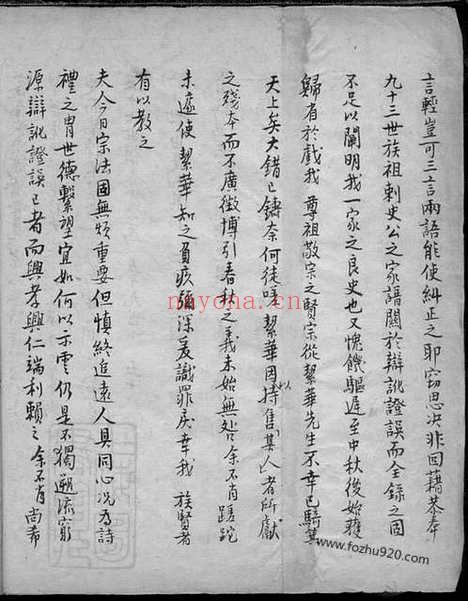 言輕豈可三言兩語能使糾正之耶竊思决非回藉恭奉
九十三世族祖刺史公之家譜關於辯訛證誤而全錄之固
不足以闡明我一家之良史也又愧饑驅遲至中秋後始獲
歸者於戲我 尊祖敬宗之賢宗從絜華先生不幸已騎箕
天上矣大錯已鑄奈何徒呼絜華因持以售其人者所獻
之殘本而不廣徵博引春秋之義未始無咎余不肖蹉跎
未遽使絜華知之負疚彌深爰識罪戾幸我 族賢者
有以教之
夫今日宗法固無煩重要但慎終追遠人具同心況為詩
禮之胄世德繫望宜如何以示雲仍是不獨遡流窮
源辯訛證誤已者而興孝興仁端利賴之余不肖尚希
nayona.cn
www.fozhu920.com